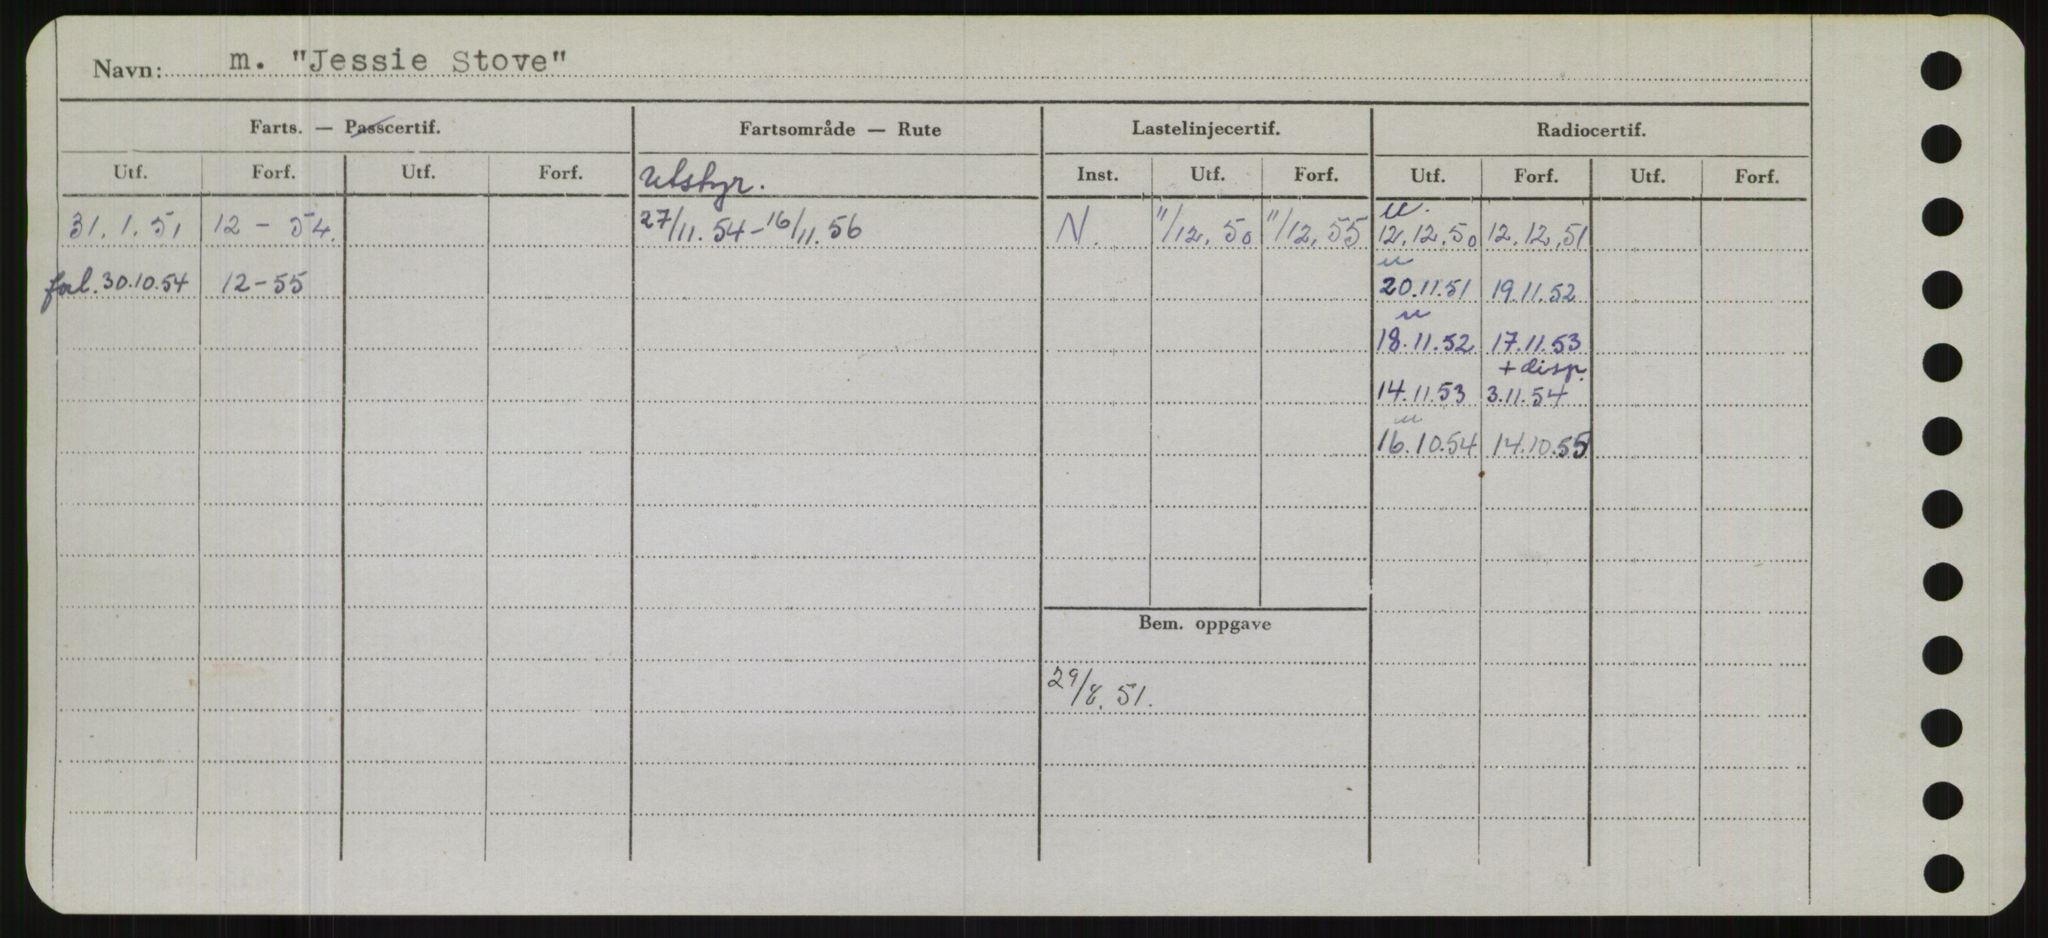 Navn: m. "Jessie Stove"
Farts. — Passcertif. Fartsområde — Rute Lastelinjecertif. Radiocertif.
Utf. Forf. Utf. Forf. Utstyr. Inst. Utf. Forf. Utf. Forf. Utf. Forf.
u.
31. 1. 51 12 - 54. 27/11. 54 - 16/11. 56 N. 11/12. 50 11/12. 55 12.12.50 12.12.51
u
forl. 30.10.54 12-55 20.11.51 19.11.52
u
18.11.52 17.11.53
+ disp.
14.11.53 3.11.54
u
16.10.54 14.10.55
Bem. oppgave
29/8. 51.